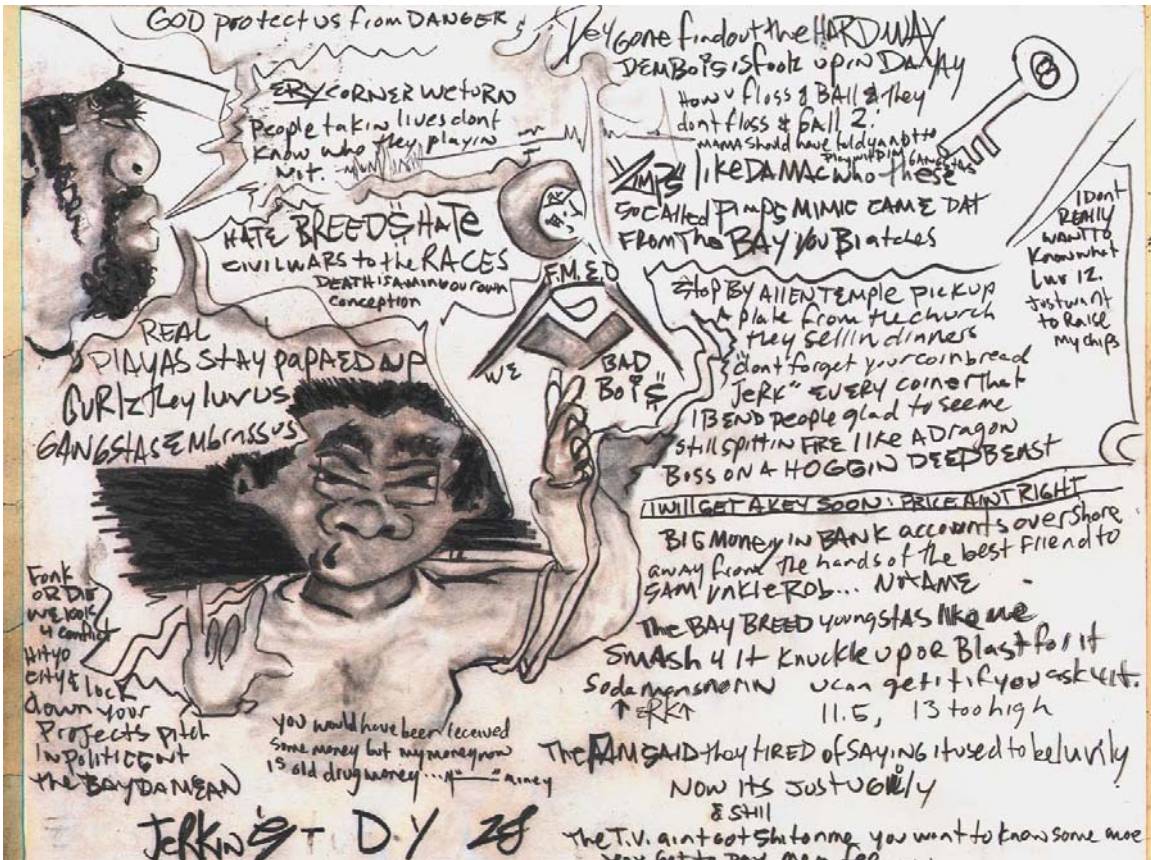 GOD protect us from DANGER
ERY CORNER WE TURN
People takin lives dont
Know who they playin
wit.
HATE BREED$ HATE
CIVIL WARS to the RACES
DEATH IS A MIN OUR OWN
conception
REAL
PlAYAS STAY papAED UP
GURlz they luv us
GANGSTAS EMbrass us
F.M.E.D
WE
BAD
Boi$
Fonk
OR DIE
4 conflict
Hit yo
city & lock
down your
Projects pitch
In politiccnt
the BAY DA MEAN
you would have been received
some money but my money now
IS old drug money...
JERKIN
D.Y
Dey gone find out the HARD WAY
DEM BOiS is fook up in DA YAY
How v floss & BAll & they
dont floss & ball 2.
MAMA should have told ya not to
play wit DEM GANGSTAS
PIMPS lIKE DA MAC who these
SO CAlled PimpS MIMIC CAME DAT
FROM The BAY you BIatches
8
I Dont
REAlly
WANT TO
Know what
Luv 12.
Just want
to Raise
My chips
Stop BY AllEN TEMPLE pick up
A plate from the church
they sellin dinners
"dont forget your coinbread
JERK" EVERY coiner That
I BEND people glad to see me
still spittin FIRE lIKE A DRagon
BOSS ON A HOGGIN DEED BEAST
I WIll GET A KEY SOON: PRICE AINT RIGHT
BIG Money IN BANK accounts over shore
away from the hands of the best Friend to
SAM UNKle ROB... Not AME
The BAY BREED youngstas lIKe me
SmAsh 4 It Knuckle up OR Blast for it
Soda man snorin u can get it if you ask 4 it.
↑ ERK ↑ 11.5, 13 too high
The FAM SAID they tIRED of SAYING it used to be luvily
NOW ITS JUST UGlily
& Still
The T.V. aint got shit on me you want to know some moe